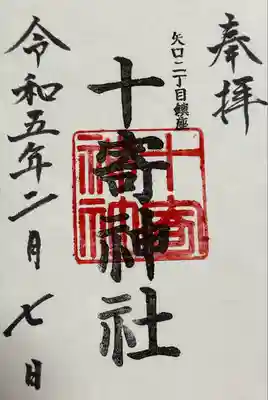 奉拝
矢口二丁目鎮座
十寄神社
十寄神社
令和五年二月七日